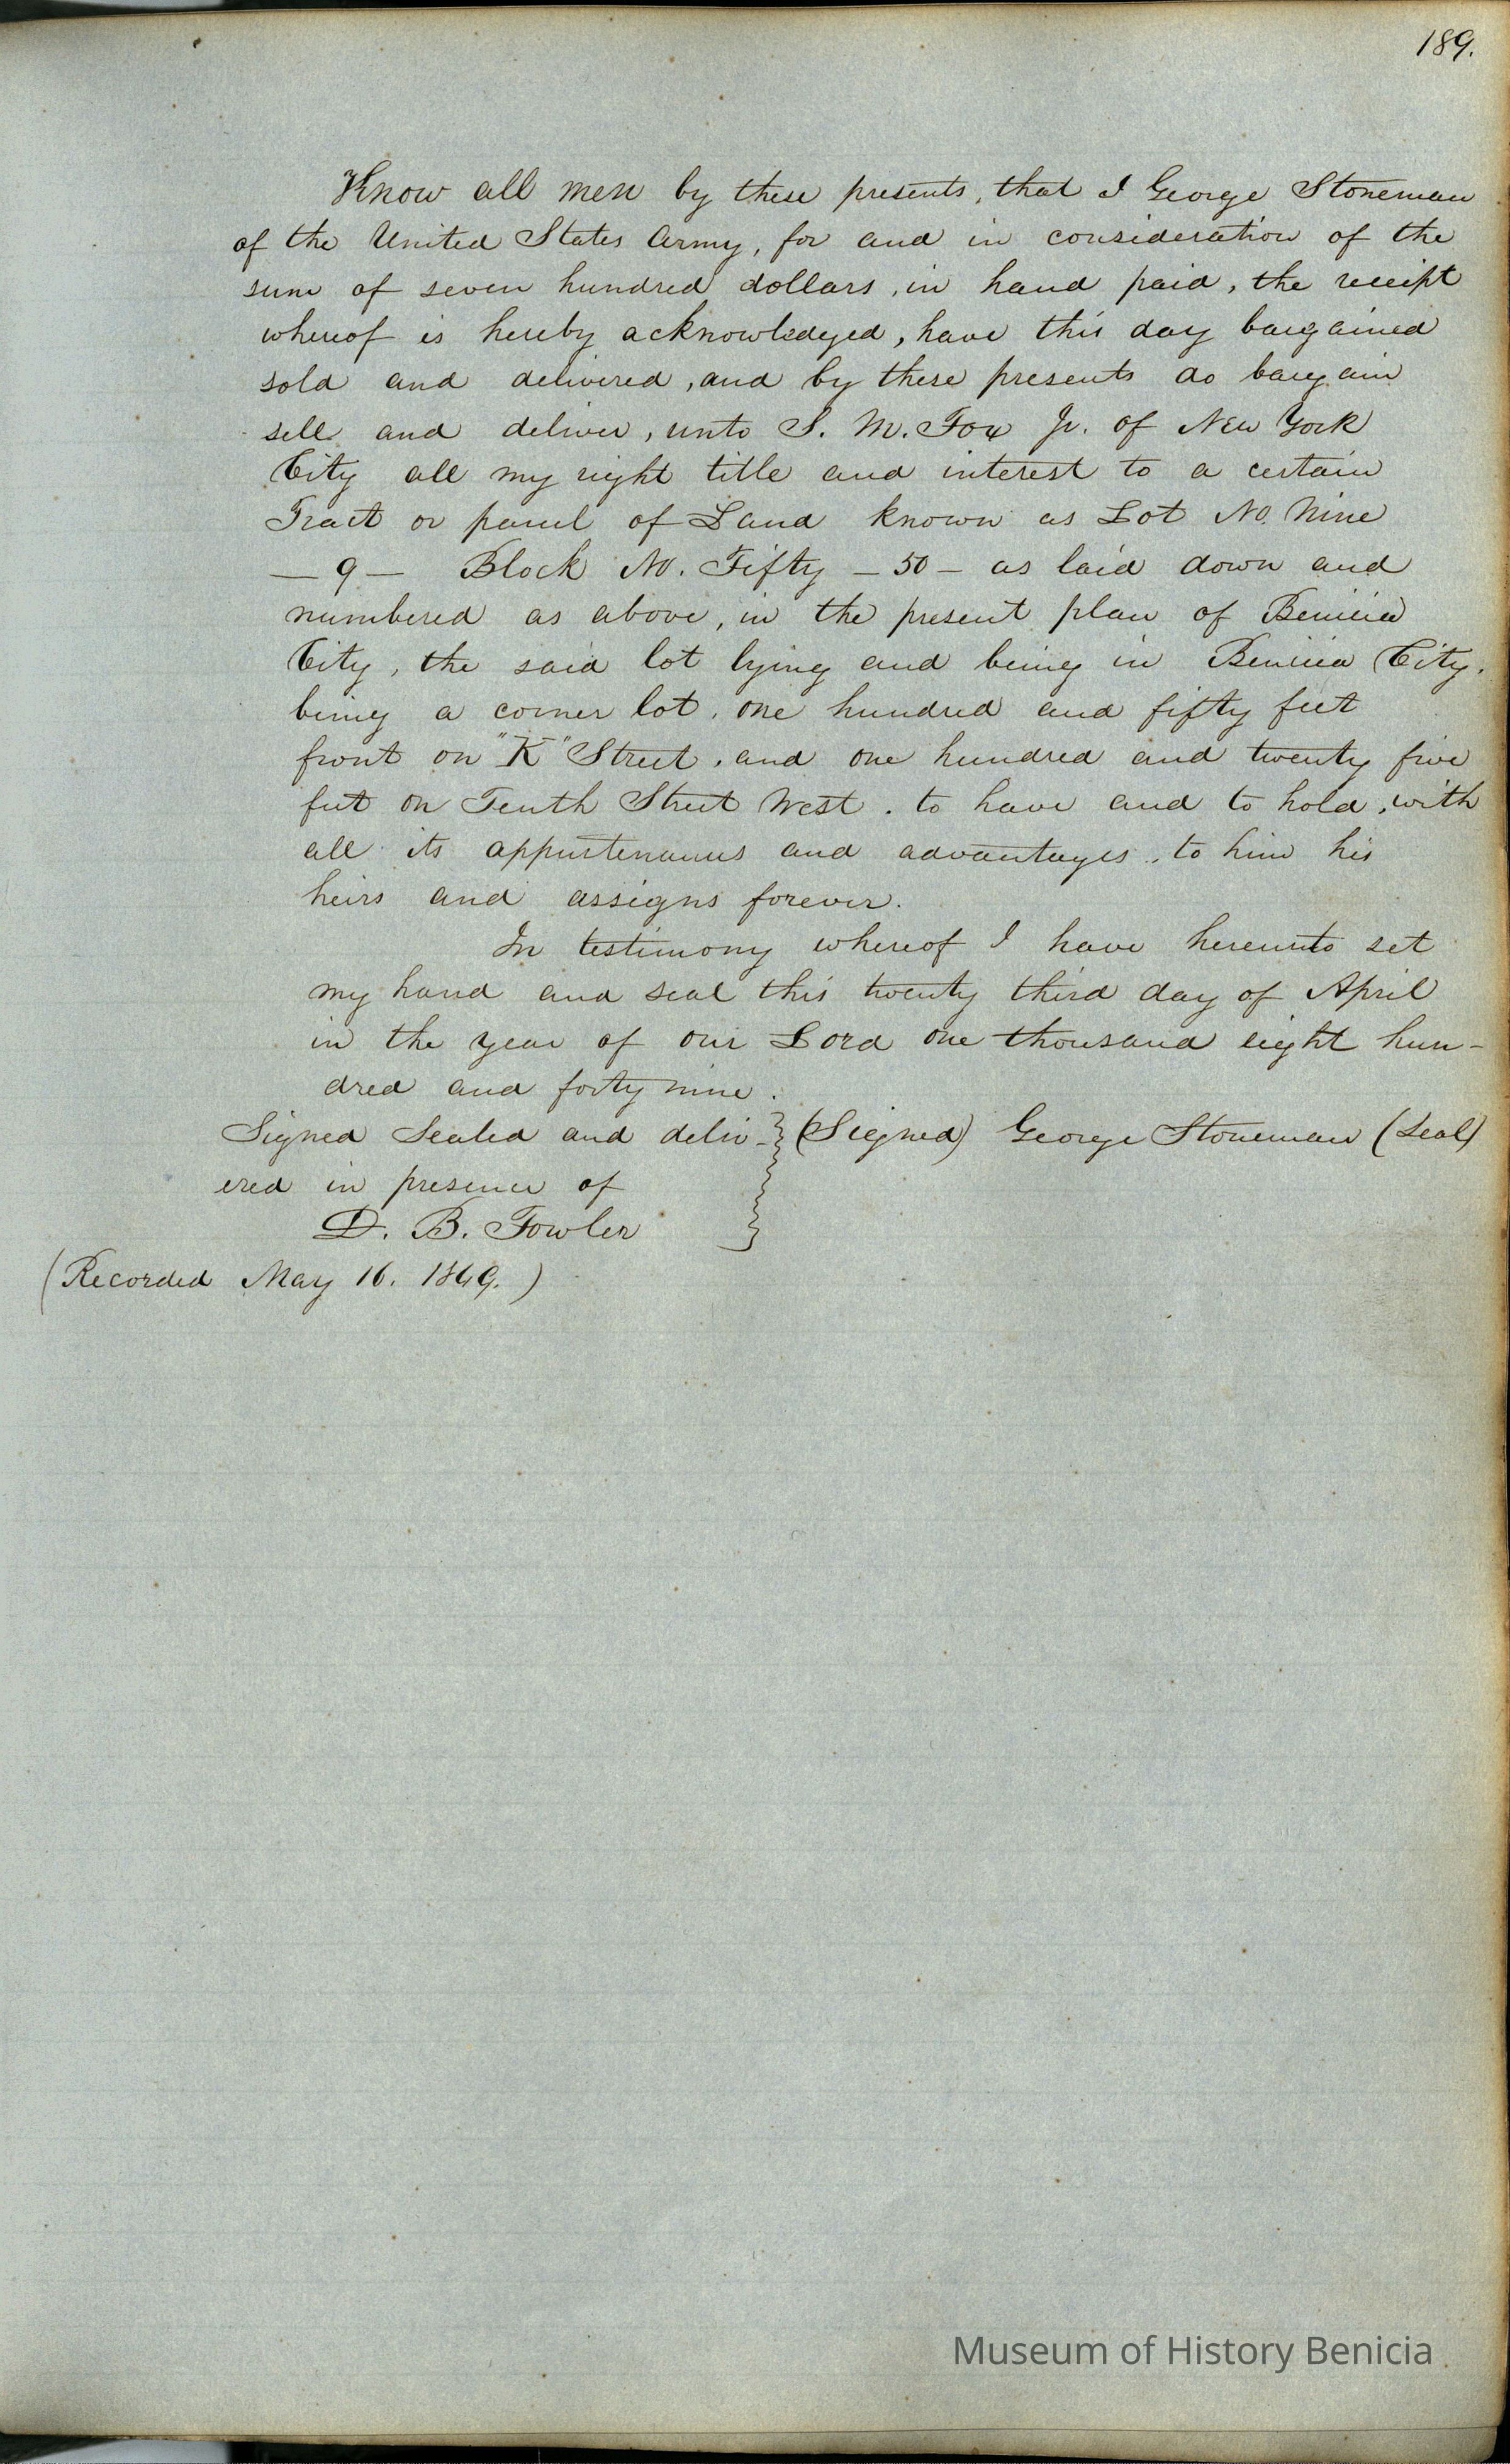 189.
Know all men by these presents, that I George Stoneman
of the United States Army, for and in consideration of the
sum of seven hundred dollars, in hand paid, the receipt
whereof is hereby acknowledged, have this day bargained
sold and delivered, and by these presents do bargain
sell and deliver, unto S. M. Fox Jr. of New York
City all my right title and interest to a certain
Tract or parcel of Land known as Lot No. Nine
— 9 — Block No. Fifty — 50 — as laid down and
numbered as above, in the present plan of Benicia
City, the said lot lying and being in Benicia City.
being a corner lot, one hundred and fifty feet
front on "K" Street, and one hundred and twenty five
feet on Tenth Street West. to have and to hold, with
all its appurtenances and advantages, to him his
heirs and assigns forever.
In testimony whereof I have hereunto set
my hand and seal this twenty third day of April
in the year of our Lord one thousand eight hun-
dred and forty nine.
Signed Sealed and deliv- } (Signed) George Stoneman (Seal)
ered in presence of
D. B. Fowler
(Recorded May 16. 1849.)
Museum of History Benicia